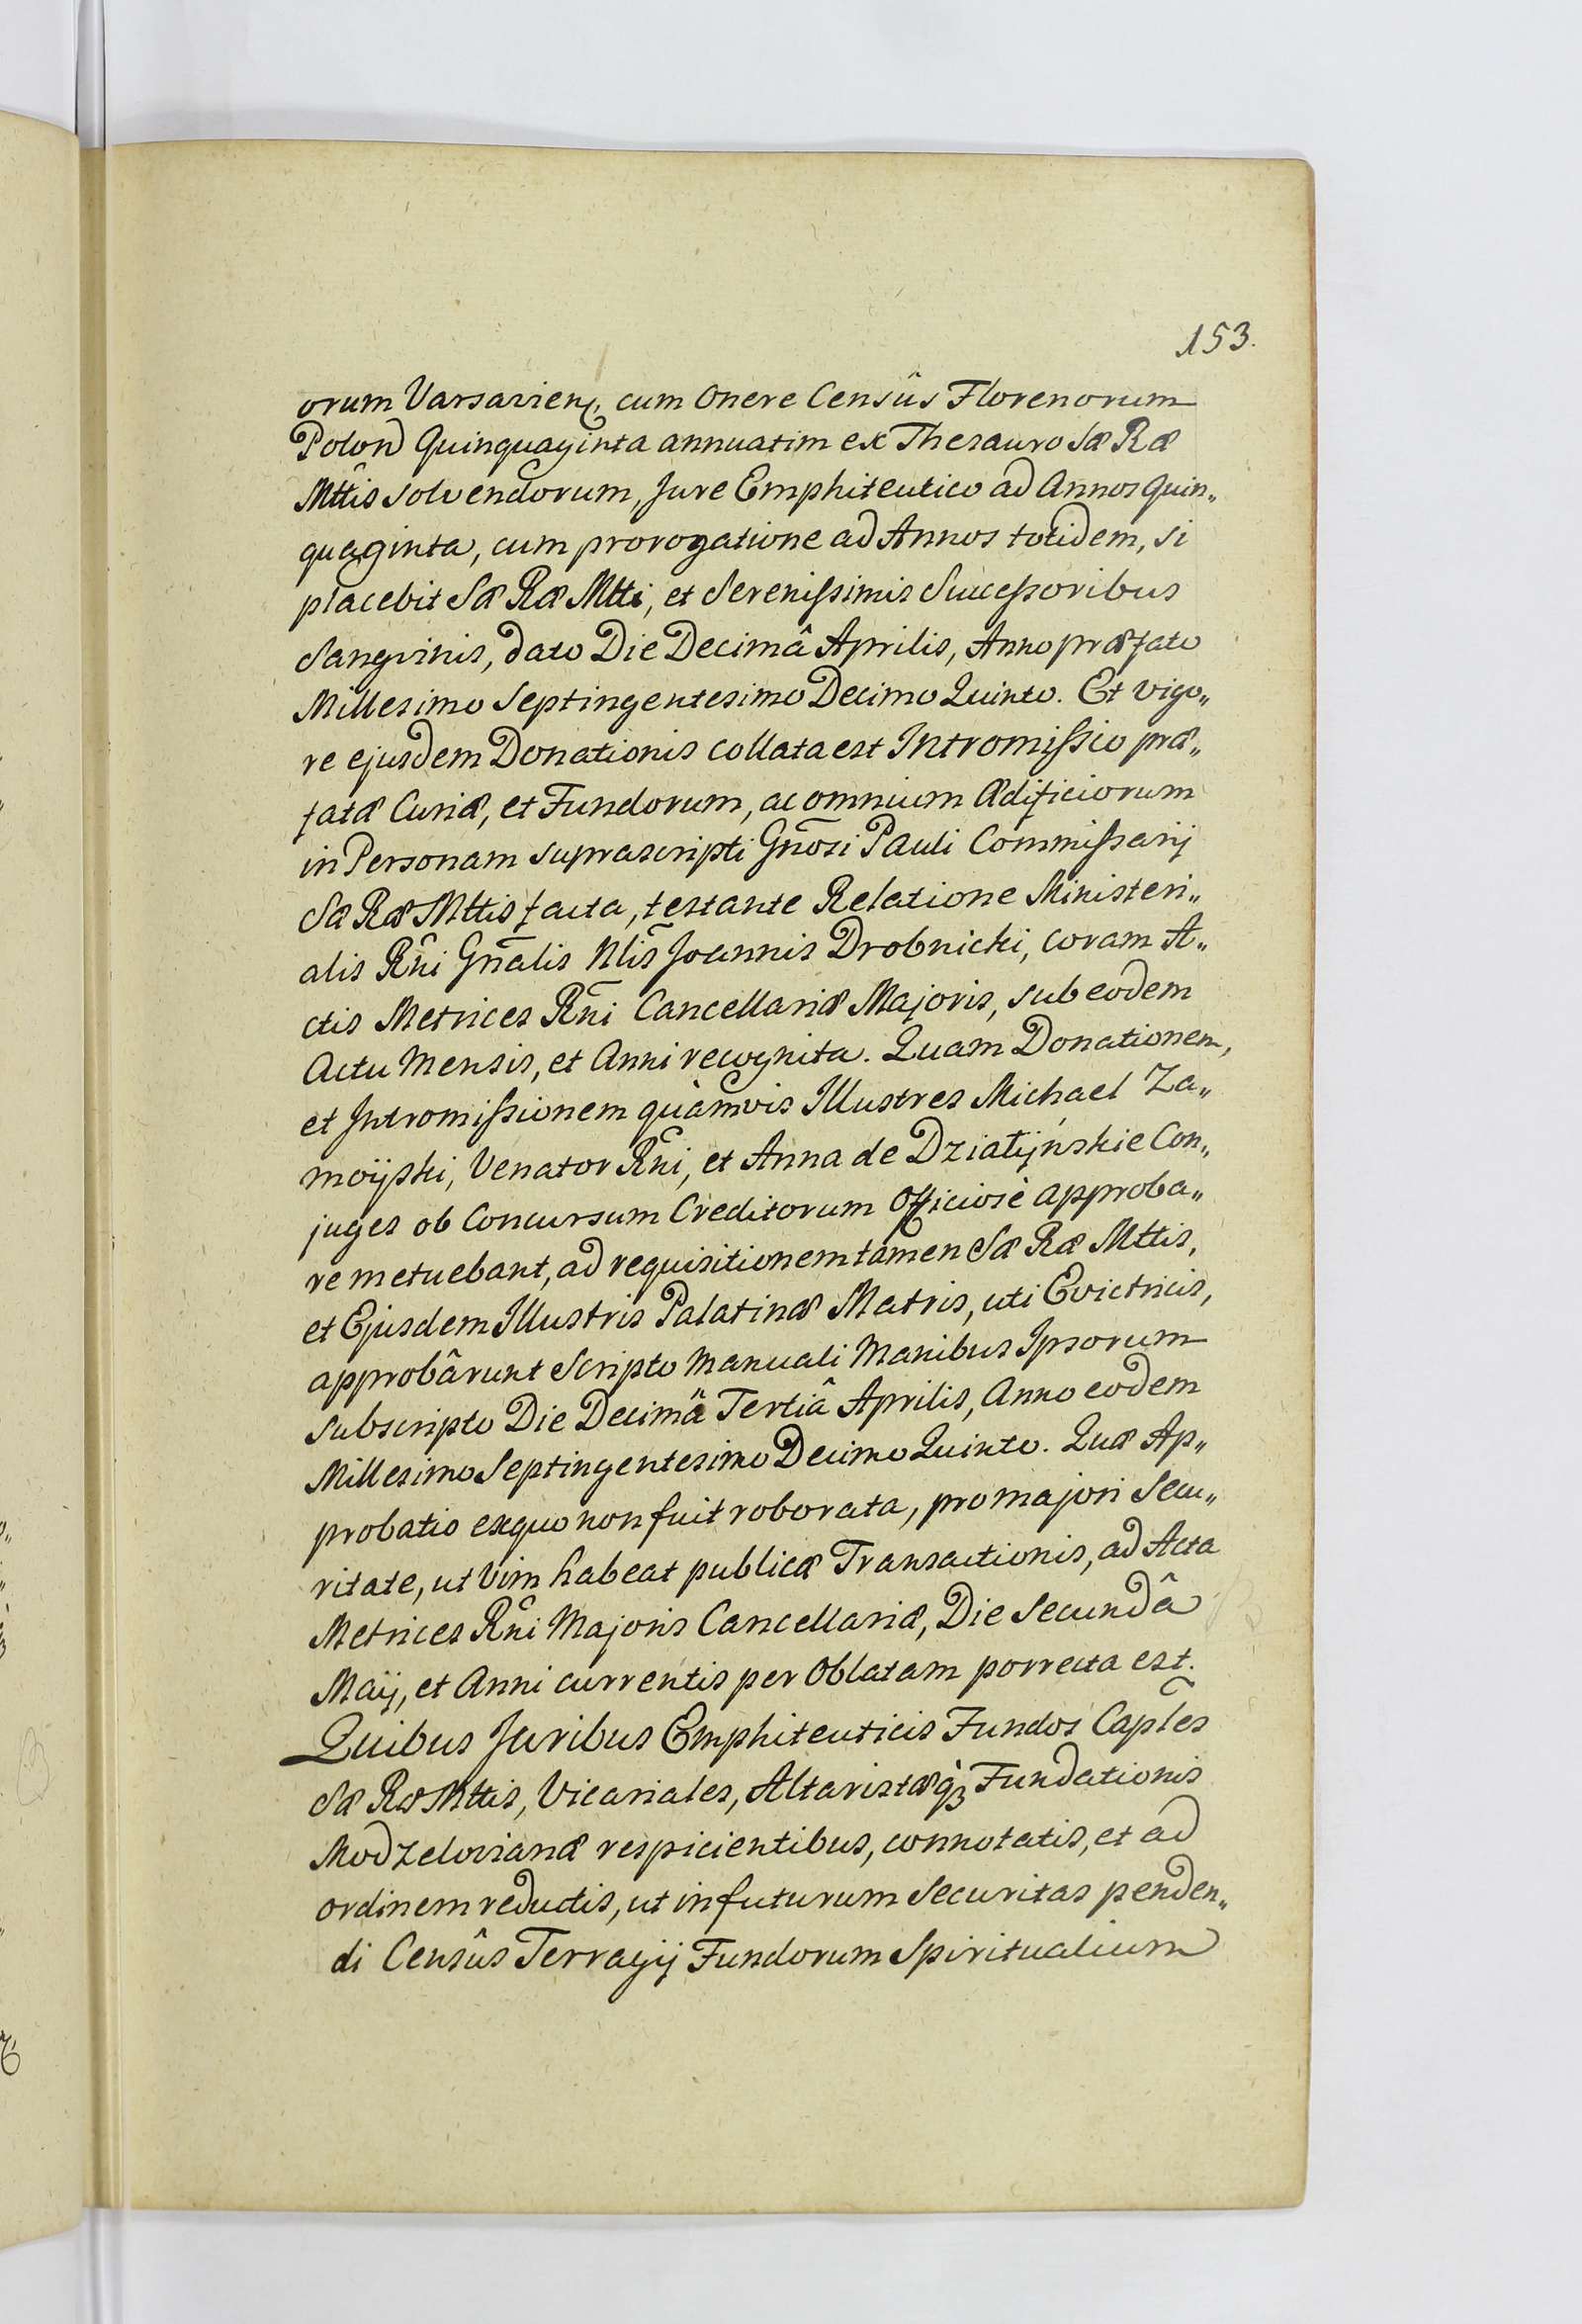 153.
orum Varsavien, cum Onere Censûs Florenorum
Polon Quinquaginta annuatim ex Thesauro Sæ Ræ
Mttis solvendorum, Jure Emphiteutico ad Annos Quin„
quaginta, cum prorogatione ad Annos totidem, si
placebit Sæ Ræ Mtti, et Serenissimis Successoribus
Sangvinis, dato Die Decimâ Aprilis, Anno præfato
Millesimo Septingentesimo Decimo Quinto. Et vigo„
re ejusdem Donationis collata est Intromissio præ„
fatæ Curiæ, et Fundorum, ac omnium Ædificiorum
in Personam suprascripti Gnosi Pauli Commissarij
Sæ Ræ Mttis facta, testante Relatione Ministeri„
alis Rni Gnalis Nlis Joannis Drobnicki, coram A„
ctis Metrices Rni Cancellariæ Majoris, sub eodem
Actu Mensis, et Anni recognita. Quam Donationem,
et Intromissionem quàmvis Illustres Michael Za„
moÿski, Venator Rni, et Anna de Działÿńskie Con„
juges ob Concursum Creditorum Officiosè approba„
re metuebant, ad requisitionem tamen Sæ Ræ Mttis,
et Ejusdem Illustris Palatinæ Matris, uti Evictricis,
approbârunt Scripto Manuali Manibus Ipsorum
subscripto Die Decimâ Tertiâ Aprilis, Anno eodem
Millesimo Septingentesimo Decimo Quinto. Quæ Ap„
probatio exquo non fuit roborata, pro majori Secu„
ritate, ut Vim habeat publicæ Transactionis, ad Acta
Metrices Rni Majoris Cancellariæ, Die Secundâ
Maij, et Anni currentis per Oblatam porrecta est.
Quibus Juribus Emphiteuticis Fundos Caples
Sæ Ræ Mttis, Vicariales, Altaristæq3 Fundationis
Modzelovianæ respicientibus, connotatis, et ad
ordinem reductis, ut in futurum Securitas penden„
di Censûs Terragij Fundorum Spiritualium